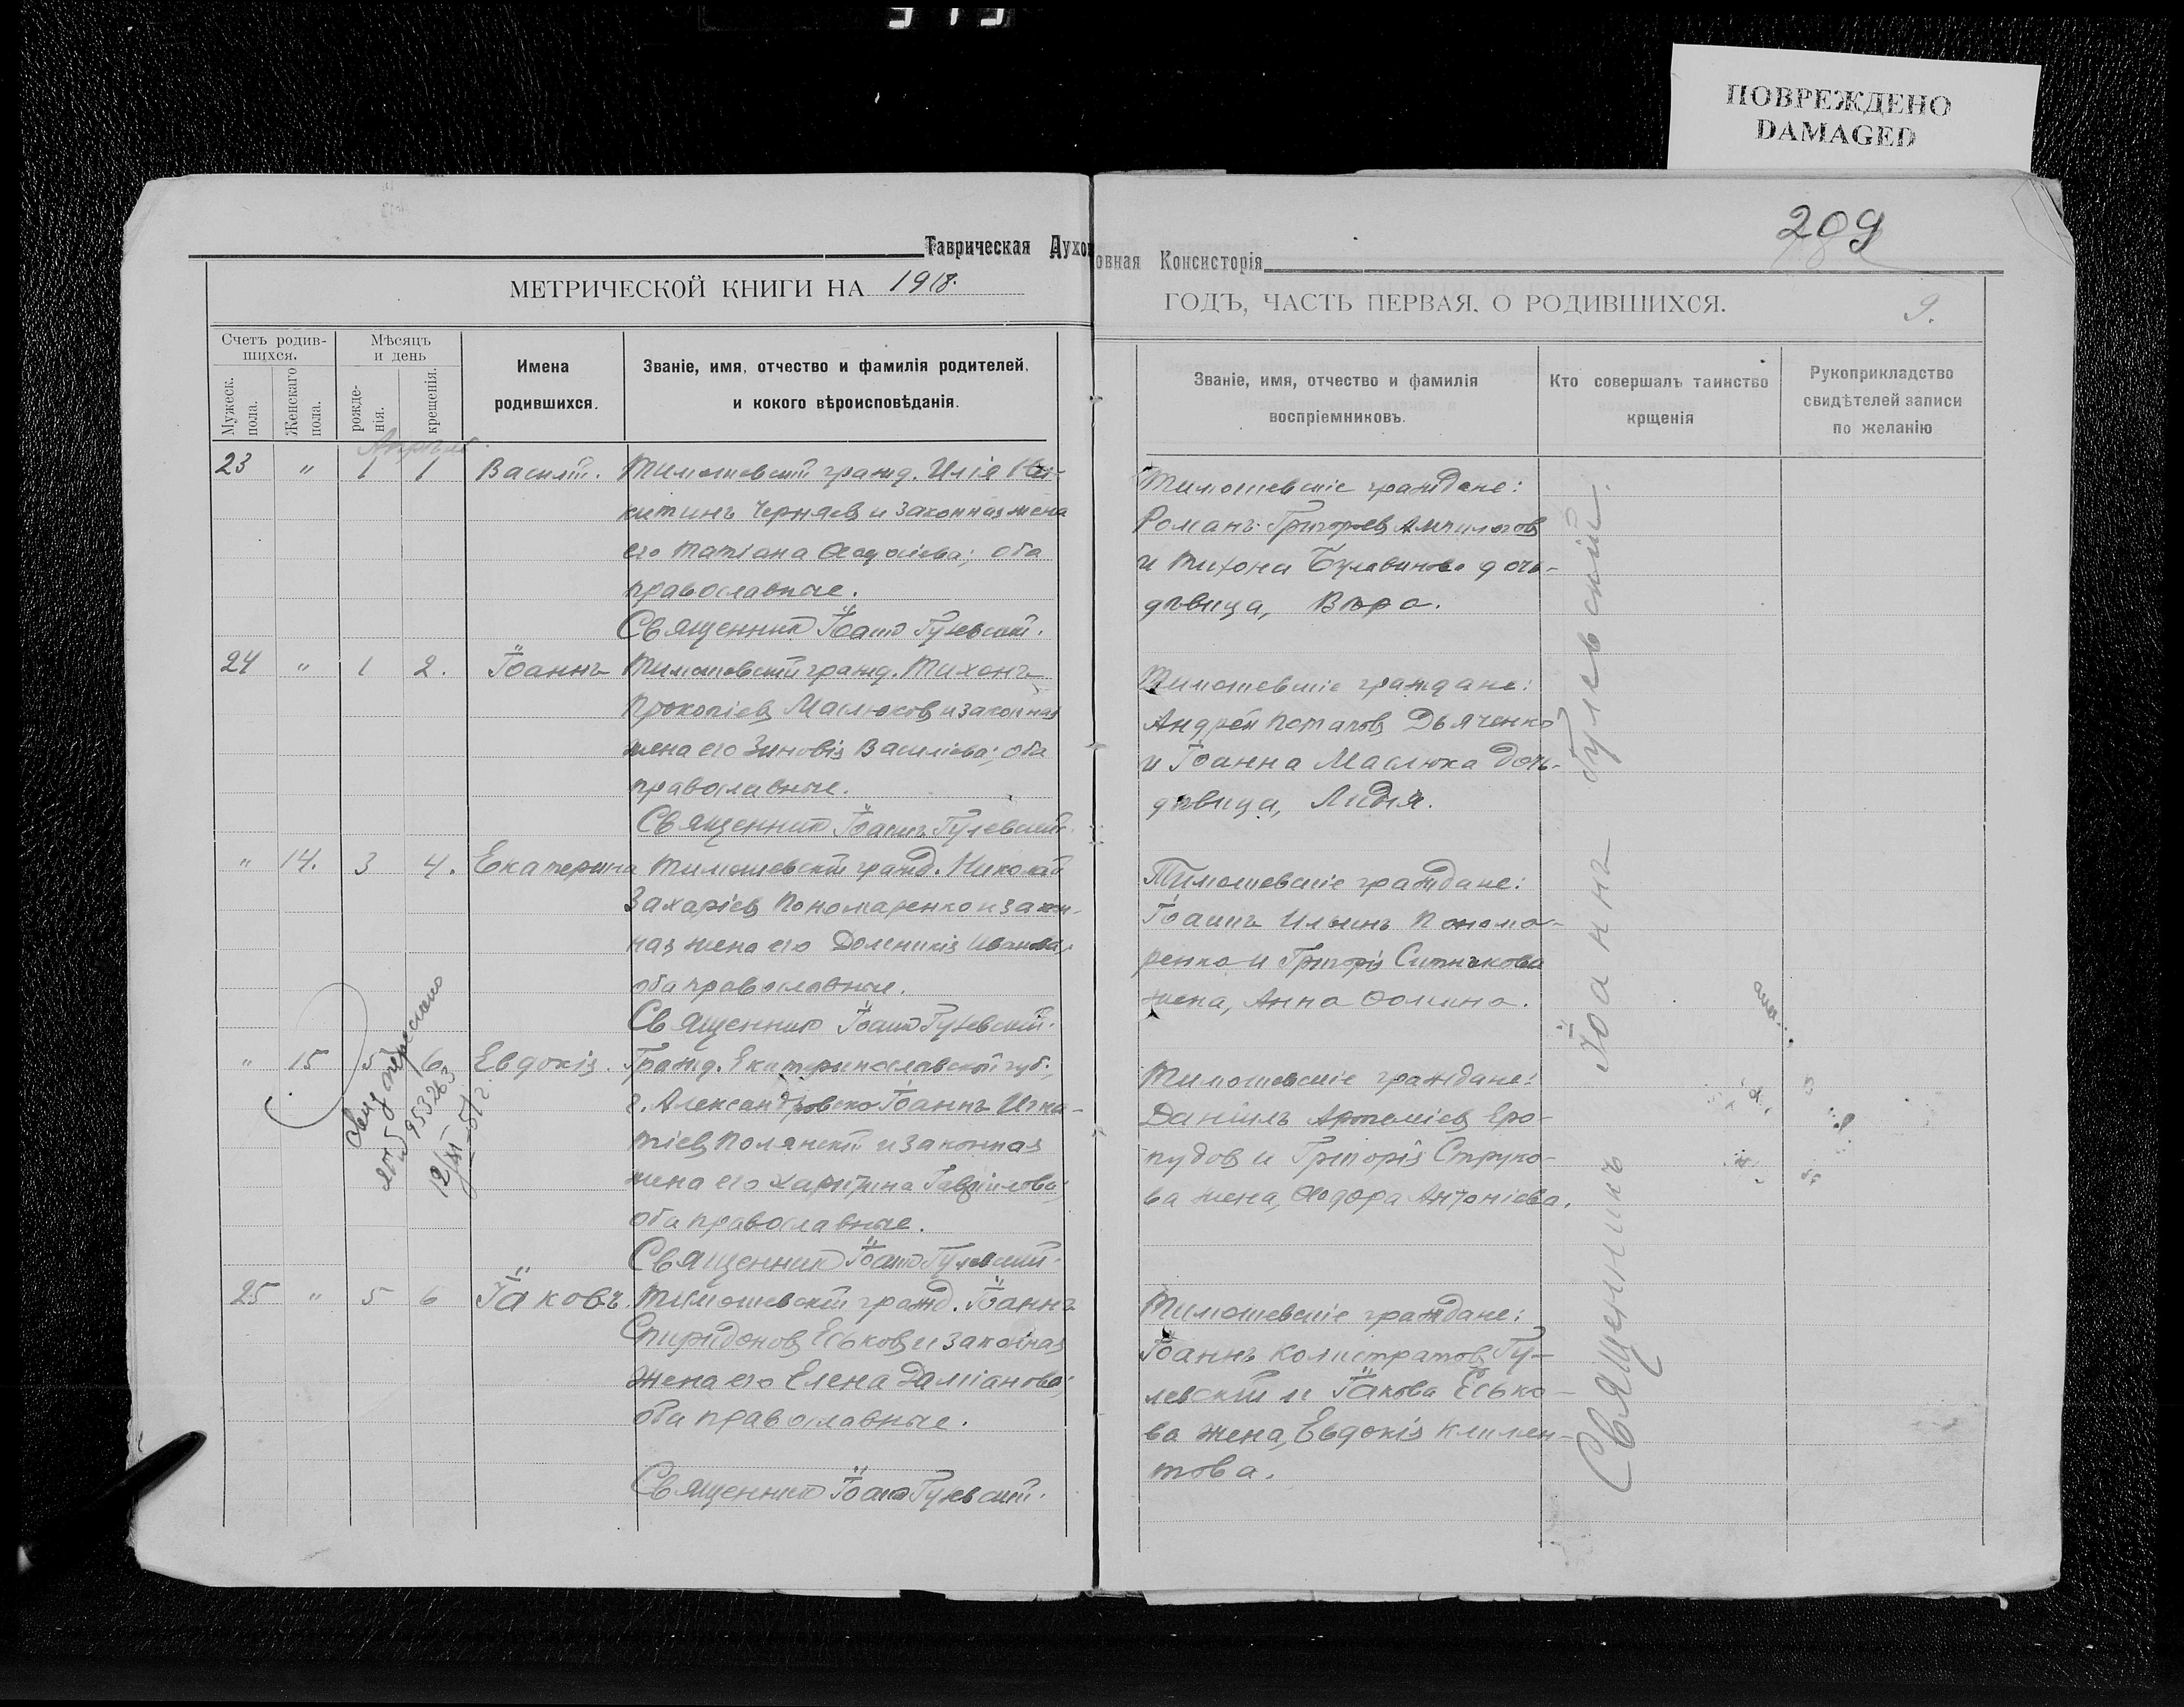 ПОВРЕЖДЕНО
DAMAGED
209
Таврическая Духовная Консисторія
МЕТРИЧЕСКОЙ КНИГИ НА 1918.
ГОДЪ, ЧАСТЬ ПЕРВАЯ, О РОДИВШИХСЯ.
9.
Счетъ родив-
шихся.
Мужеск.
пола.
Женскаго
пола.
Мѣсяцъ
и день
рожде-
нія.
крещенія.
Имена
родившихся.
Званіе, имя, отчество и фамилія родителей,
и кокого вѣроисповѣданія.
Званіе, имя, отчество и фамилія
воспріемниковъ.
Кто совершалъ таинство
крщенія
Рукоприкладство
свидѣтелей записи
по желанію
Апрѣль.
23 " 1 1 Василій. Тимошевскій гражд. Илія Ни-
китинъ Черняев и законная жена
его Татіана Ѳеодосіева; оба
православные.
Священник Іоанн Гулевский.
Тимошевскіе граждане:
Романъ Григорьев Ампилогов
и Тихона Булавинова дочь-
дѣвица, Вѣра.
24 " 1 2. Іоаннъ Тимошевский гражд. Тихонъ
Прокопіев Маслюков и законная
жена его Зиновія Василіева; оба
православные.
Священник Іоаннъ Гулевский.
Тимошевскіе граждане:
Андрей Потапов Дьяченко
и Іоанна Маслюка дочь-
дѣвица, Лидія.
" 14. 3 4. Екатерина Тимошевскій гражд. Николай
Захаріев Пономаренко и закон-
ная жена его Домникія Иванова;
оба православные.
Священник Іоанн Гулевский.
Тимошевскіе граждане:
Іоаннъ Ильинъ Понома-
ренко и Григорія Ситникова
жена, Анна Ѳомина.
" 15 5 6 Евдокія. Гражд. Екатеринославской губ.,
г. Александровска Іоаннъ Игна-
тіев Полянскій и законная
жена его Харитина Гавріилова;
оба православные.
Священник Іоанн Гулевский.
Тимошевскіе граждане:
Даніилъ Артеміев Еро-
пудов и Григорія Струко-
ва жена, Ѳеодора Антоніева.
12/XI-51г.
25 " 5 6 Іаковъ. Тимошевскій гражд. Іоаннъ
Спиридонов Еськов и законная
жена его Елена Даміанова;
оба православные.
Священник Іоанн Гулевский.
Тимошевскіе граждане:
Іоаннъ Калистратов Гу-
левский и Іакова Есько-
ва жена, Евдокія Климен-
това.
Священникъ Іоаннъ Гулевский.